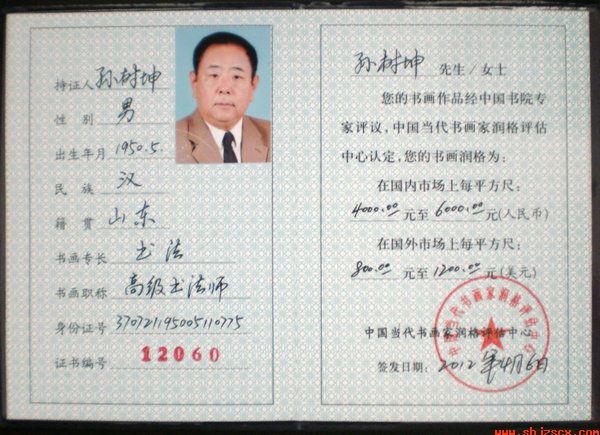 持证人 孙树坤
性 别 男
出生年月 1950.5.
民 族 汉
籍 贯 山东
书画专长 书法
书画职称 高级书法师
身份证号 370721195005110775
证书编号 12060
孙树坤 先生/女士
您的书画作品经中国书院专
家评议，中国当代书画家润格评估
中心认定，您的书画润格为：
在国内市场上每平方尺：
4000.00 元至 6000.00 元(人民币)
在国外市场上每平方尺：
800.00 元至 1200.00 元(美元)
中国当代书画家润格评估中心
中国当代书画家润格评估中心
签发日期：2012年4月6日
www.shizscx.com